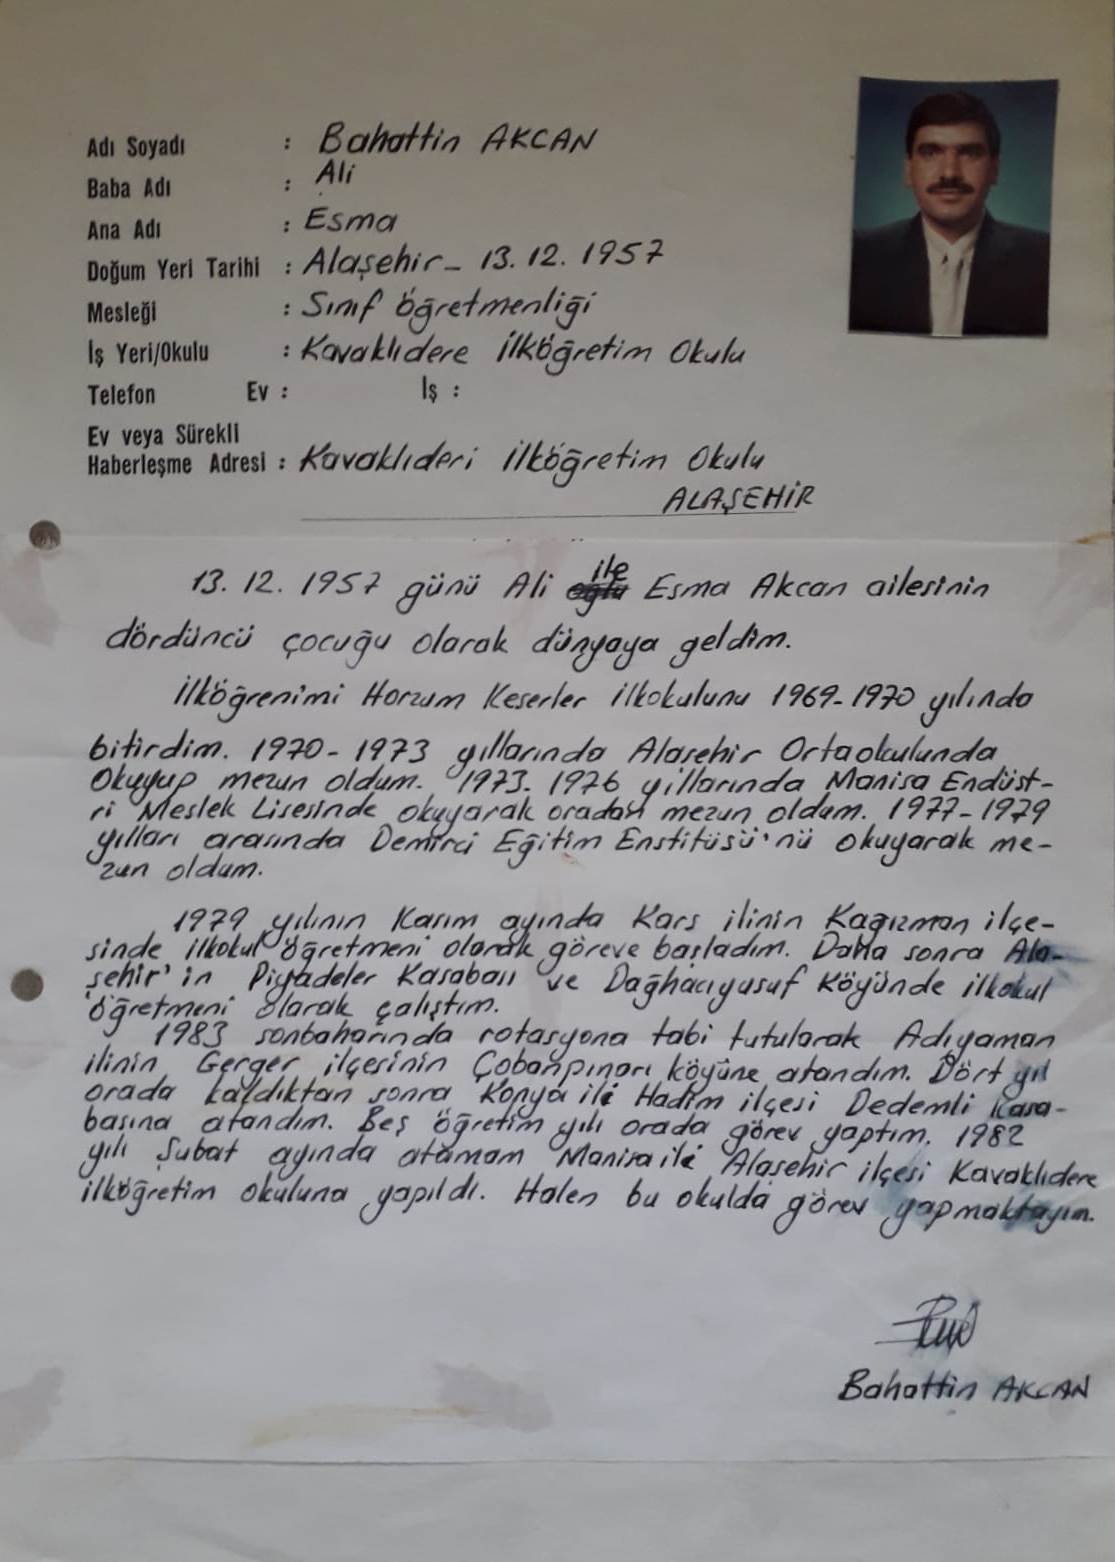 Adı Soyadı : Bahattin AKCAN
Baba Adı : Ali
Ana Adı : Esma
Doğum Yeri Tarihi : Alaşehir - 13.12.1957
Mesleği : Sınıf öğretmenliği
İş Yeri/Okulu : Kavaklıdere İlköğretim Okulu
Telefon Ev : İş :
Ev veya Sürekli
Haberleşme Adresi : Kavaklıderi İlköğretim Okulu
ALAŞEHİR
13.12.1957 günü Ali ile Esma Akcan ailesinin
dördüncü çocuğu olarak dünyaya geldim.
İlköğrenimi Horzum Keserler ilkokulunu 1969-1970 yılında
bitirdim. 1970-1973 yıllarında Alaşehir Ortaokulunda
Okuyup mezun oldum. 1973-1976 yıllarında Manisa Endüst-
ri Meslek Lisesinde okuyarak oradan mezun oldum. 1977-1979
yılları arasında Demirci Eğitim Enstitüsü'nü okuyarak me-
zun oldum.
1979 yılının Kasım ayında Kars ilinin Kağızman ilçe-
sinde ilkokul öğretmeni olarak göreve başladım. Daha sonra Ala-
şehir'in Piyadeler Kasabası ve Dağhacıyusuf Köyünde ilkokul
öğretmeni olarak çalıştım.
1983 sonbaharında rotasyona tabi tutularak Adıyaman
ilinin Gerger ilçesinin Çobanpınarı köyüne atandım. Dört yıl
orada kaldıktan sonra Konya ili Hadim ilçesi Dedemli Kasa-
basına atandım. Beş öğretim yılı orada görev yaptım. 1982
yılı Şubat ayında atamam Manisa ili Alaşehir ilçesi Kavaklıdere
ilköğretim okuluna yapıldı. Halen bu okulda görev yapmaktayım.
Bahattin AKCAN